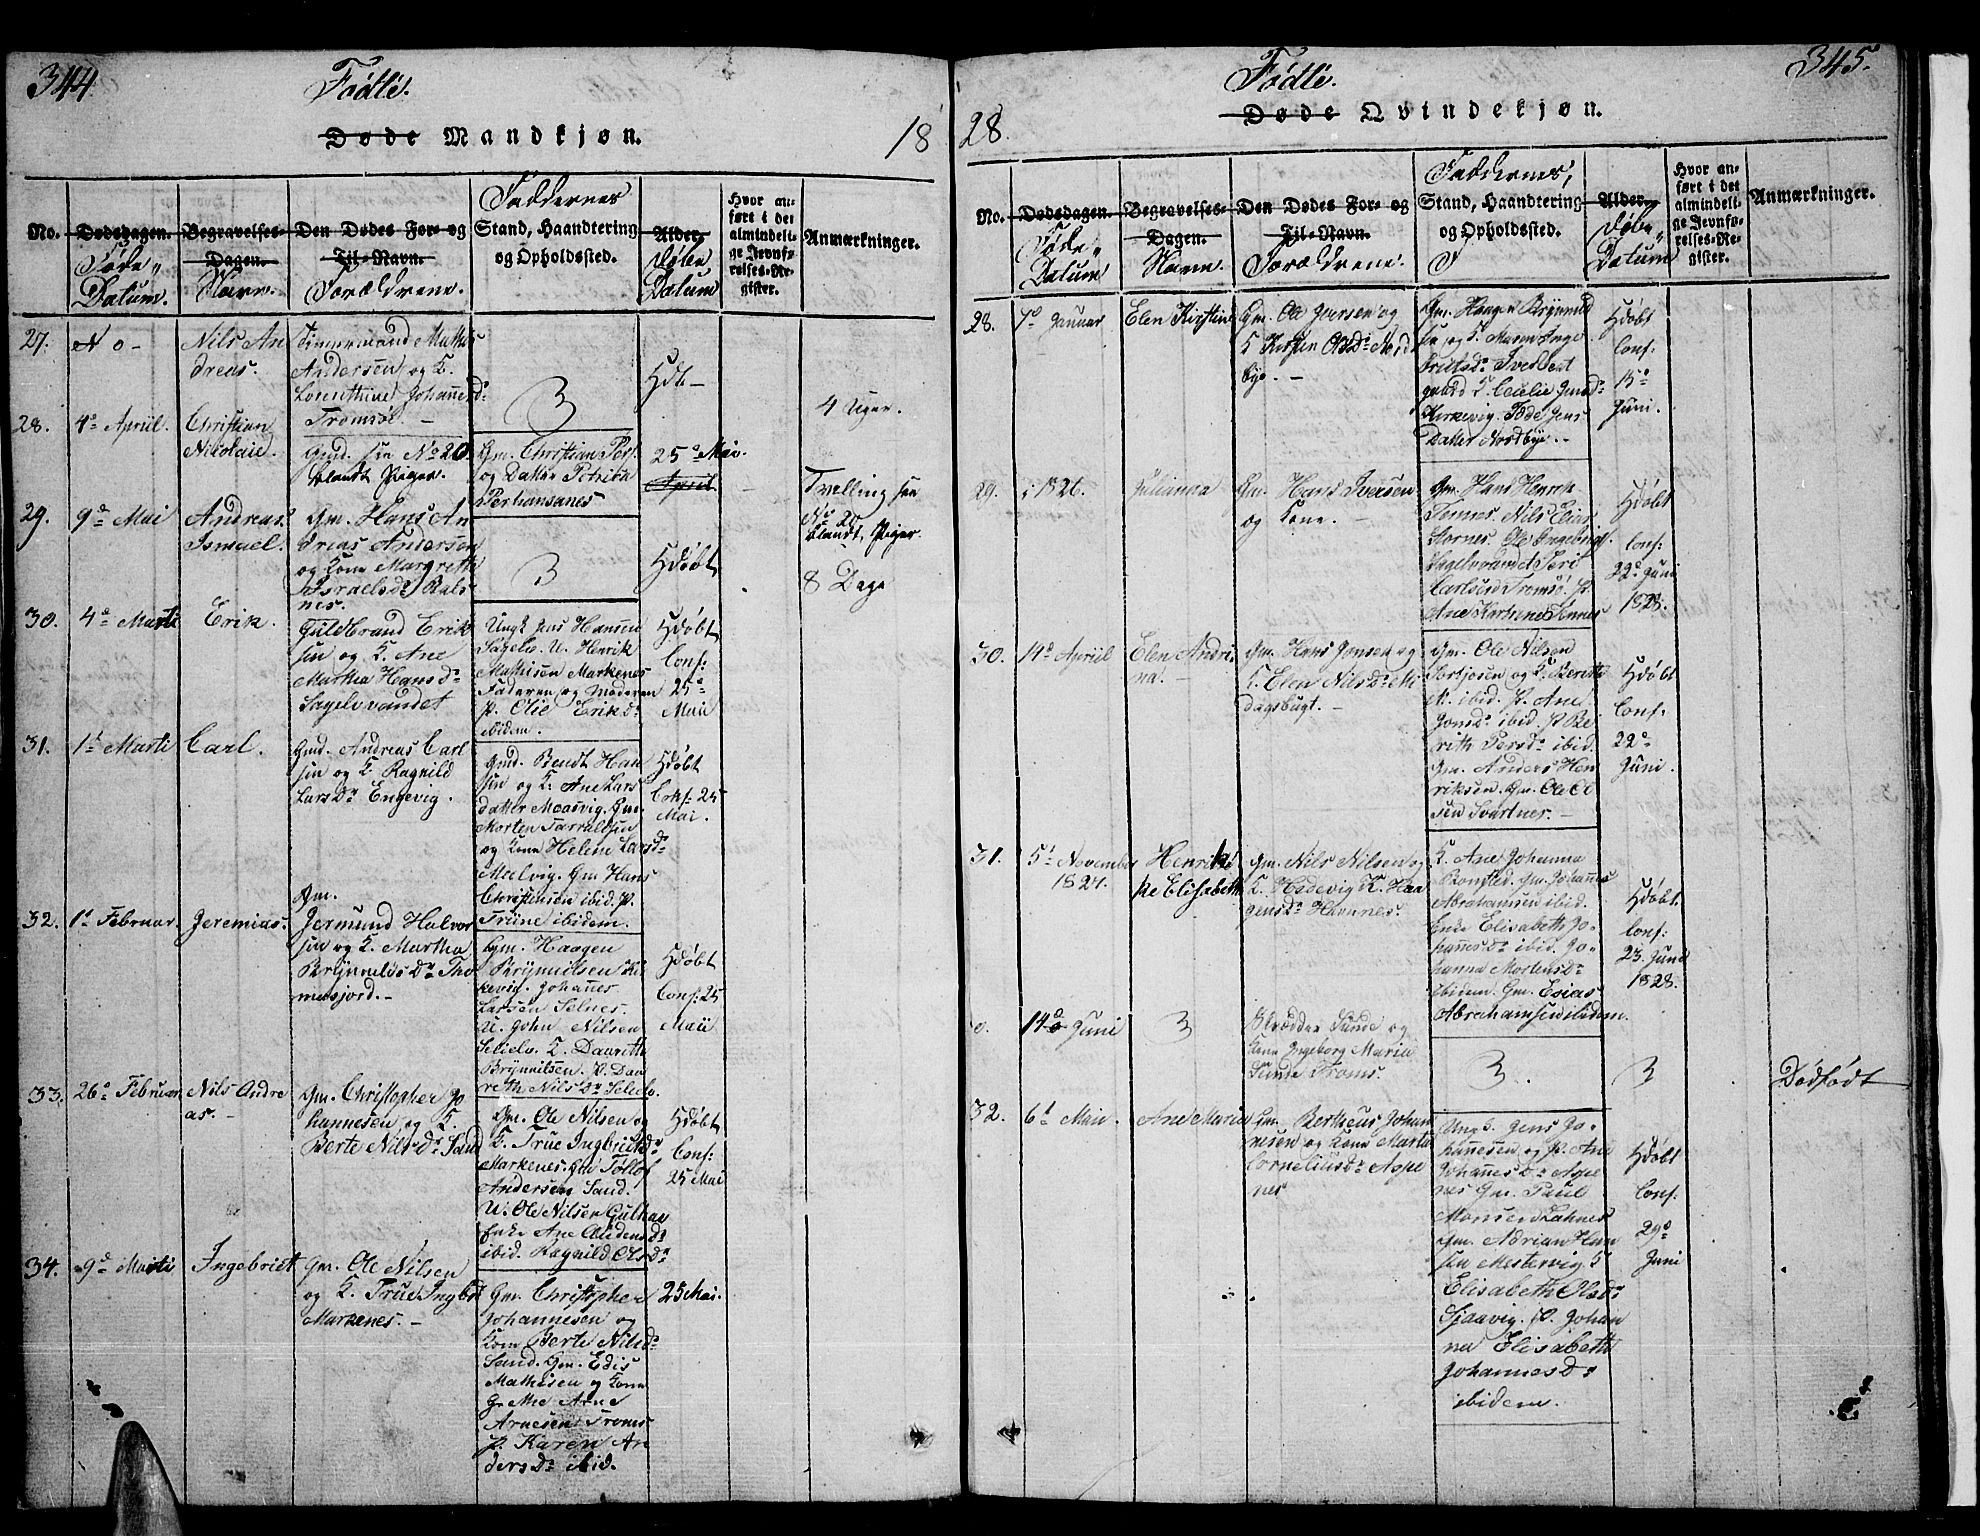 344
Fødte.
Døde Mandkjøn.
18
No.
Dødsdagen.
Føde-
Datum.
Begravelses-
Dagen.
Navn.
Den Dødes For- og
Til-Navn.
Forældrene.
Faddernes
Stand, Haandtering
og Opholdssted.
Alder.
Døbe
Datum
Hvor an-
ført i det
almindeli-
ge Jevnfø-
relses-Re-
gister.
Anmærkninger.
27.
No-
Nils An
dreas.
Timmermand
Andersen og K.
Johannesd:
Tromsøe. -
3
Hdt-
4 Uger.
28.
4de Apriil.
Christian
Nikolaie
Gmd. see No 20
blandt Piger.
Gm. Christian Pers.
og Datter Petrikka
Perhansanes
25de Mai.
April
Tvelling see
No 20
blandt Piger.
29.
9de Mai
Andreas
Ismael.
Gm. Hans An
dreas Andersen
og Kone Margreth
Israelsdr Bals
nes.
3
Hdøbt
8 Dage
30.
4de Marti
Erik.
Guldbrand Erik
sen og K. Ane
Martha Hansdr
Sagelvvandet
Ungk Jens Hansen
Sagelv. U. Henrik
Mathisen Markenes
Faderen og Moderen
P. Olie Eriksdr
ibidem.
Hdøbt
Conf:
25de
Maii
31.
1ste Marti
Carl.
Gmd. Andreas Carl
sen og K. Ragnild
Larsdr Engevig.
Gmd. Bendt Han
sen og K. Ane Lars
datter Maasvig. Gm.
Morten Tarraldsen
og Kone Helene Larsdr
Mælvig. Gm Hans
Christensen ibid. P.
Trune ibidem.
Hdøbt
Conf: 25
Mai.
32.
1ste Februar.
Jeremias.
Gm.
Jermund Halvor
sen og K. Martha
Brynnildsdr Tho
mesjord.-
Gm. Haagen
Brynnilsen Ki
kevig. Johannes
Larsen Selnes.
U. John Nilsen
Selielv. K. Dauritte
Brynnilsen. P. Dau
reth Nilsdr Selielv.
Hdøbt
Conf: 25
Maii
33.
26de Februar
Nils Andre
as. -
Gm. Christopher Jo
hannesen og K.
Berte Nilsdr Sand
Gm. Ole Nilsen og
K. True Ingbrictdr
Markenes. Gm Tollof
Andersen Sand.
U. Ole Nilsen Gulhav
Enke Ane Audensdr
ibid. Ragnild Olsdr
Hdøbt
Conf:
25 Mai
34.
9de Marti
Ingebriet
Gm. Ole Nilsen
og K. True Ingbd
Markenes. -
Gm. Christopher
Johannesen og
Kone Berte Nilsdr
Sand. Gm. Edis
Mathisen og Kone
Grethe Arne
Arnesen Troms
P. Karen An
dersdr ibid.
25 Mai.
345.
Fødte.
Døde Qvindekjøn.
28.
No.
Dødsdagen.
Føde-
Datum
Begravelses-
Dagen.
Navn.
Den Dødes For- og
Til-Navn.
Forældrene.
Faddernes,
Stand, Haandtering
og Opholdssted.
Alder.
Døbe-
Datum
Hvor an-
ført i det
almindeli-
ge Jevnfø-
relses-Re-
gister.
Anmærkninger.
28.
7de Januar
Elen Kirstine
Gm. Ole Iversen og
K Kirsten Olsdr Nord
bye. -
Gm. Haagen Brynnild
sen og K. Maren Inge
britsdr
gaard K. Cecilie
Kirkevig. Jens
Datter Nordbye. -
Hdøbt
Conf:
15de
Juni.
29.
i 1826.
Julianna
Gm. Hans Iversen
og Kone. -
Gm. Hans Henrik
Tennes. Nils Eliar
Stornes. Ole Ingebrigt
Sagelvvandet
Carlsund Tromsø. P.
Ane Karhine Tennes
Hdøbt
Conf:
22de Juni
1828.
30.
14de Apriil
Elen Andri
na. -
Gm. Hans Jonsen og
K. Elen Nilsdr Mi
dagsbugt. -
Gm. Ole Nilsen
og K. Beritte
N. ibid. P. Ane
Jonsdr ibid. P. Be
rith Persdr ibid.
Gm. Anders Hen
riksen. Gm. Ole Ol
sen Svartnes. -
Hdøbt
Conf:
22de
Juni.
31.
5te November
1827.
Henrik
ke Elisabeth
Gm. Nils Nilsen og
K. Hedevig K. Haa
gensdr Havnnes.
K. Ane Johanna
Gm. Johannes
Abrahamsen ibid.
Enke Elisabeth Jo-
hannesdr ibid. Jo-
hanna Mortensdr
ibidem. Gm. Esias
Abrahamsen ibidem.
Hdøbt
Conf:
23. Juni
1828.
0.
14de Juni
3
Skrædder Sunde og
Kone Ingeborg Maria
Sunde Troms.
3.
3
Dødfødt
32.
6te Mai.
Ane Maria
Gm. Bertheus Johan
nesen og Kone Marta
Corneliusdr Aspe
nes
Ungk. Jens Jo-
hannesen og P. Ane
Johannesdr Aspe
nes Gm. Paul
Monsen
Gm. Adrian Han
sen Mestervig K
Elisabeth Olsdr
Sjaavig. P. Johan
na Elisabeth
Johannesdr
ibidem.
Hdøbt
Conf:
29de
Juni